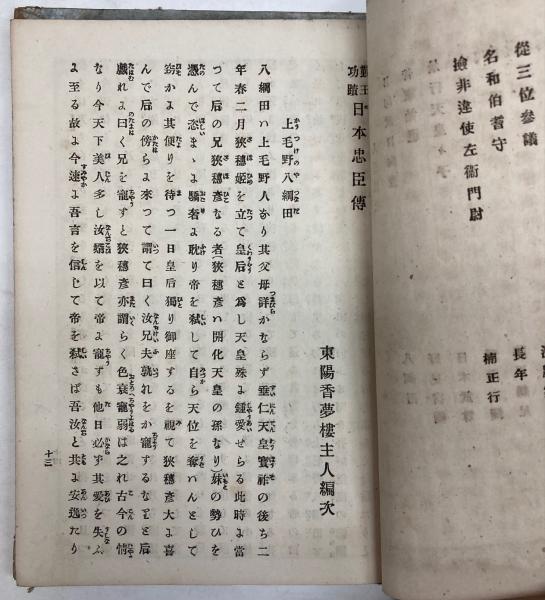 從三位參議
名和伯耆守
撿非違使左衞門尉
長年
楠正行
勤王功蹟 日本忠臣傳
東陽香夢樓主人編次
上毛野八綱田
八綱田ハ上毛野人なり其父母詳かならず垂仁天皇寳祚の後ち二
年春二月狹穗姫を立て皇后と爲し天皇殊よ鍾愛せらる此時よ當
つて后の兄狹穗彦なる者(狹穗彦ハ開化天皇の孫なり)妹の勢ひを
憑んで恣まゝよ驕奢よ耽り帝を弑して自ら天位を奪ハんとして
窃かよ其便りを待つ一日皇后獨り御座するを視て狹穗彦大よ喜
んで后の傍らよ來つて謂て曰く汝兄夫孰れをか寵するなと后
戯れよ曰く兄を寵すと狹穗彦亦謂らく色衰寵弱は之れ古今の情
なり今天下美人多し汝婿を以て帝よ寵ずも他日必ず其愛を失ふ
よ至る故よ今速よ吾言を信じて帝を弑さば吾汝と共よ安逸たり
十二